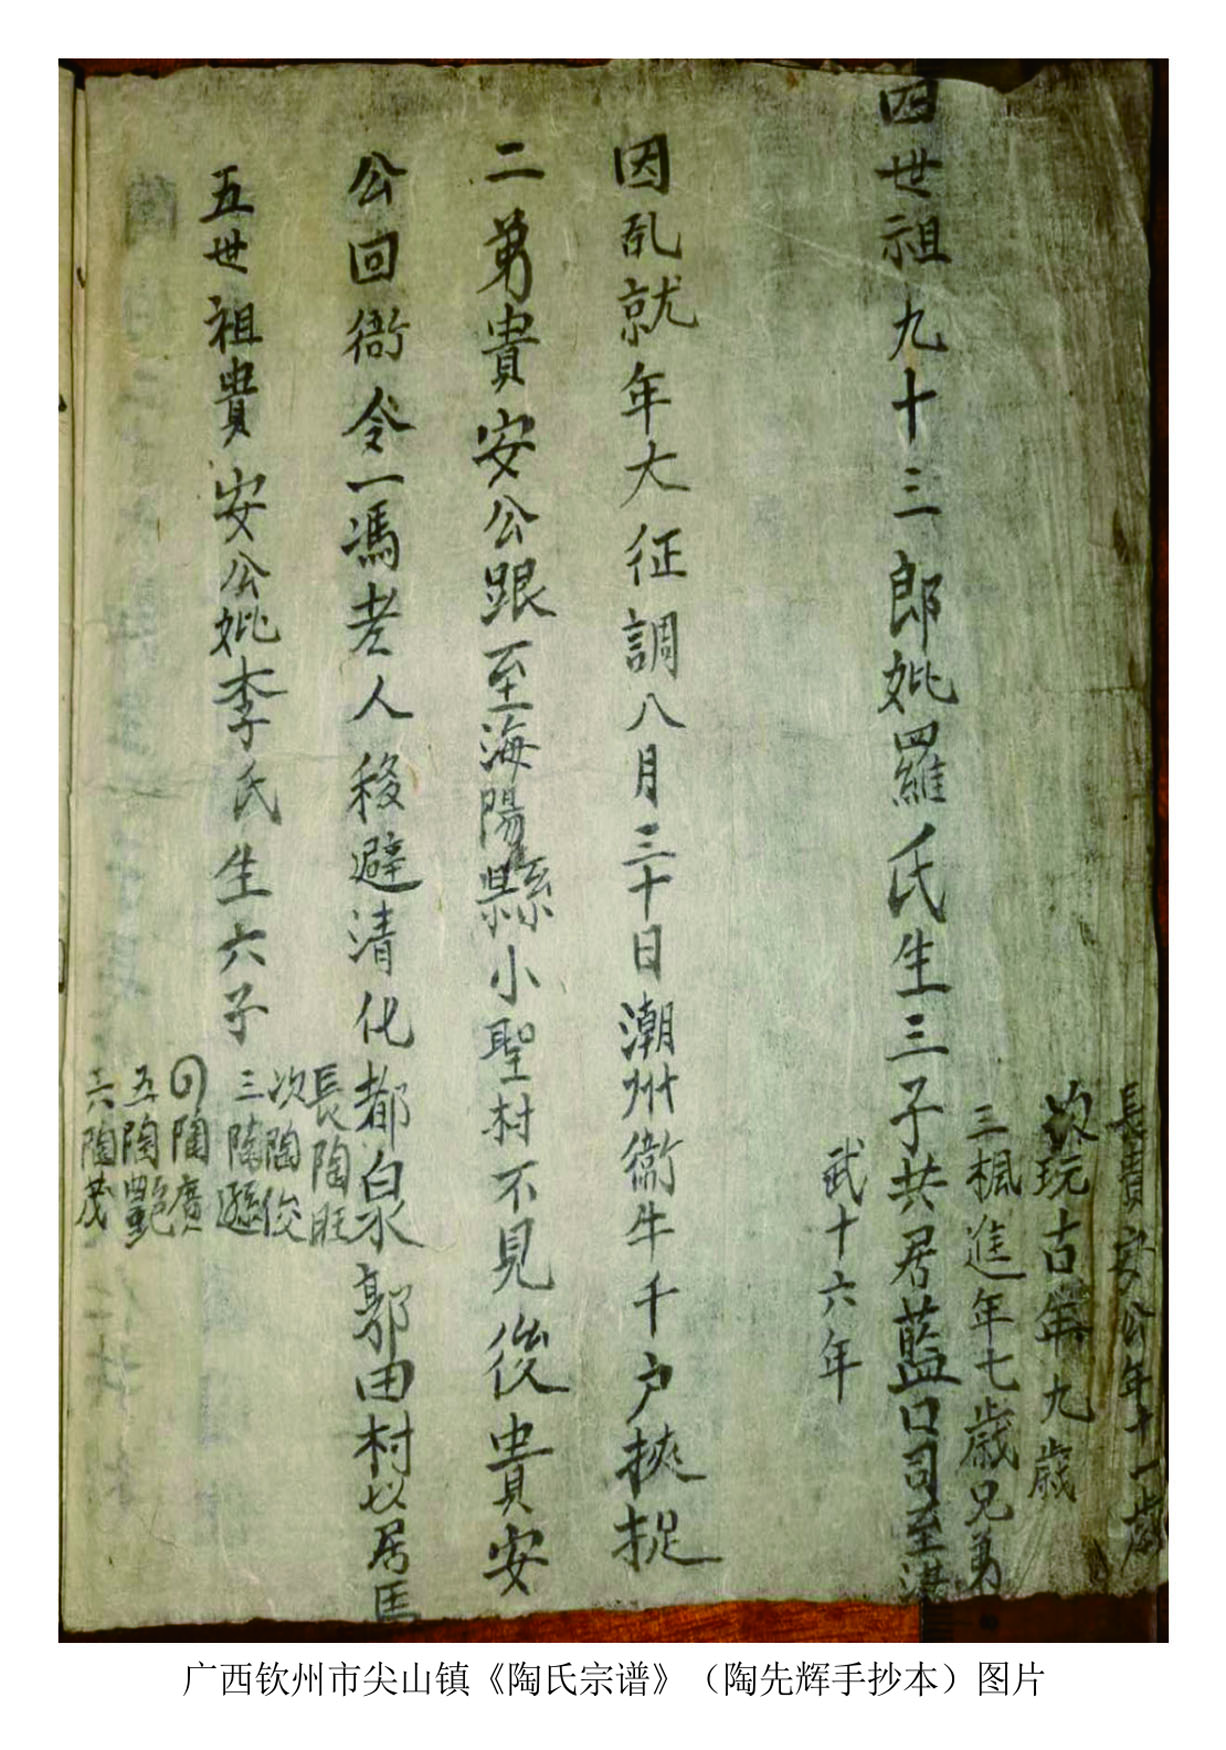 四世祖九十三郎妣羅氏生三子共居藍口司至洪
長貴安公年十一歲
次玩古年九歲
三楓進年七歲兄弟
武十六年
因乱就年大征調八月三十日潮州衛牛千户挾捉
二弟貴安公跟至海陽縣小聖村不見後貴安
公回衙令一馮老人移避清化都泉水郭田村以居焉
五世祖貴安公妣李氏生六子
長陶旺
次陶俊
三陶遜
四陶廣
五陶艷
六陶茂
广西钦州市尖山镇《陶氏宗谱》（陶先辉手抄本）图片